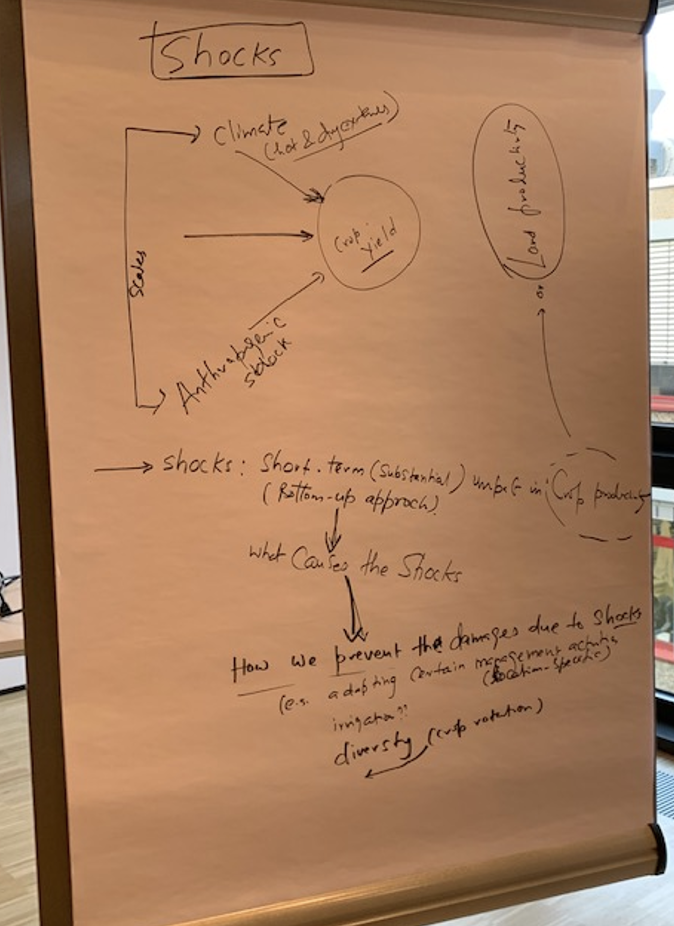 Shocks
Climate
(hot & dry extremes)
Crop
Yield
Scales
Anthropogenic
shock
or Land productivity
→ Shocks: Short-term (Substantial) impact in (Crop productivity
(Bottom-up approch)
What Causes the Shocks
How we prevent the damages due to Shocks
(e.g. adopting certain management activities
(location-specific)
irrigation??
diversity (crop rotation)